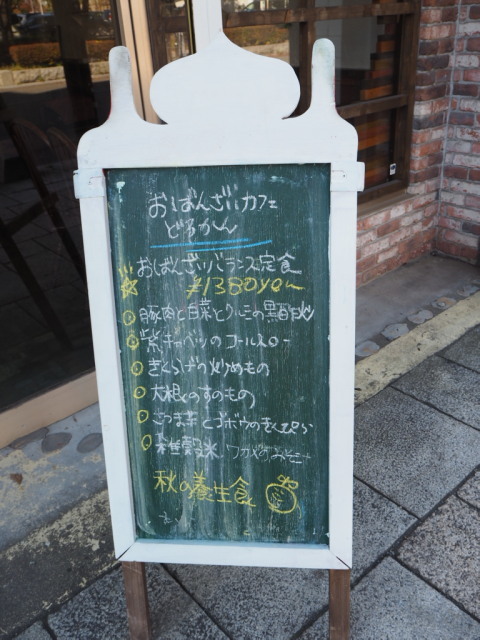 おばんざいカフェ
どるかしん
おばんざいバランス定食
¥1380yen
豚肉と白菜とクルミの黒酢炒
紫キャベツのコールスロー
きくらげの炒めもの
大根のすのもの
さつま芋とゴボウのきんぴら
雑穀米、ワカメのおみそ汁
秋の養生食